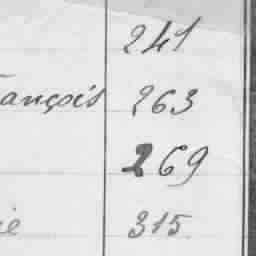 241
ançois 263
269
ie 315